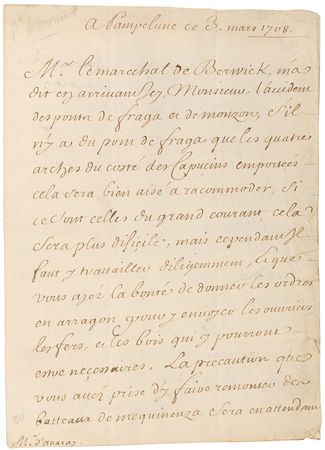 A Pampelune ce 3. mars 1708.
Mr. le marechal de Berwick, m'a
dit en arrivant Jcy, Monsieur, l'accident
des ponts de fraga et de monzon, s'il
n'y a du pont de fraga que les quatre
arches du costé des Capucins emportées
cela sera bien aisé a racommoder, si
ce sont celles du grand courant, cela
sera plus dificile, mais cependant Il
faut y travailler diligemment, et que
vous ayez la bonté de donner les ordres
en arragon pour y envoyer les ouvriers
les fers, et les bois qui y pourront
estre necessaires. La precaution que
vous avez prise d'y faire remonter des
batteaux de mequinenza sera en attendant
Mr. d'avaray